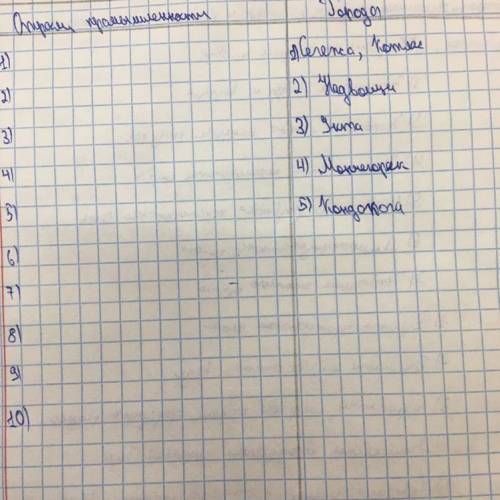 Отрасль промышленности
Города
1)
1) Сегежа, Котлас
2)
2) Надвоицы
3)
3) Ухта
4)
4) Мончегорск
5)
5) Кондопога
6)
7)
8)
9)
10)